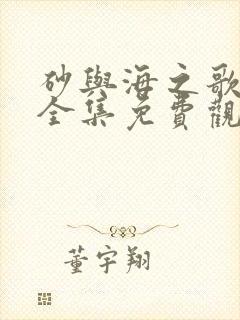 砂與海之歌
全集免費觀
董宇翔